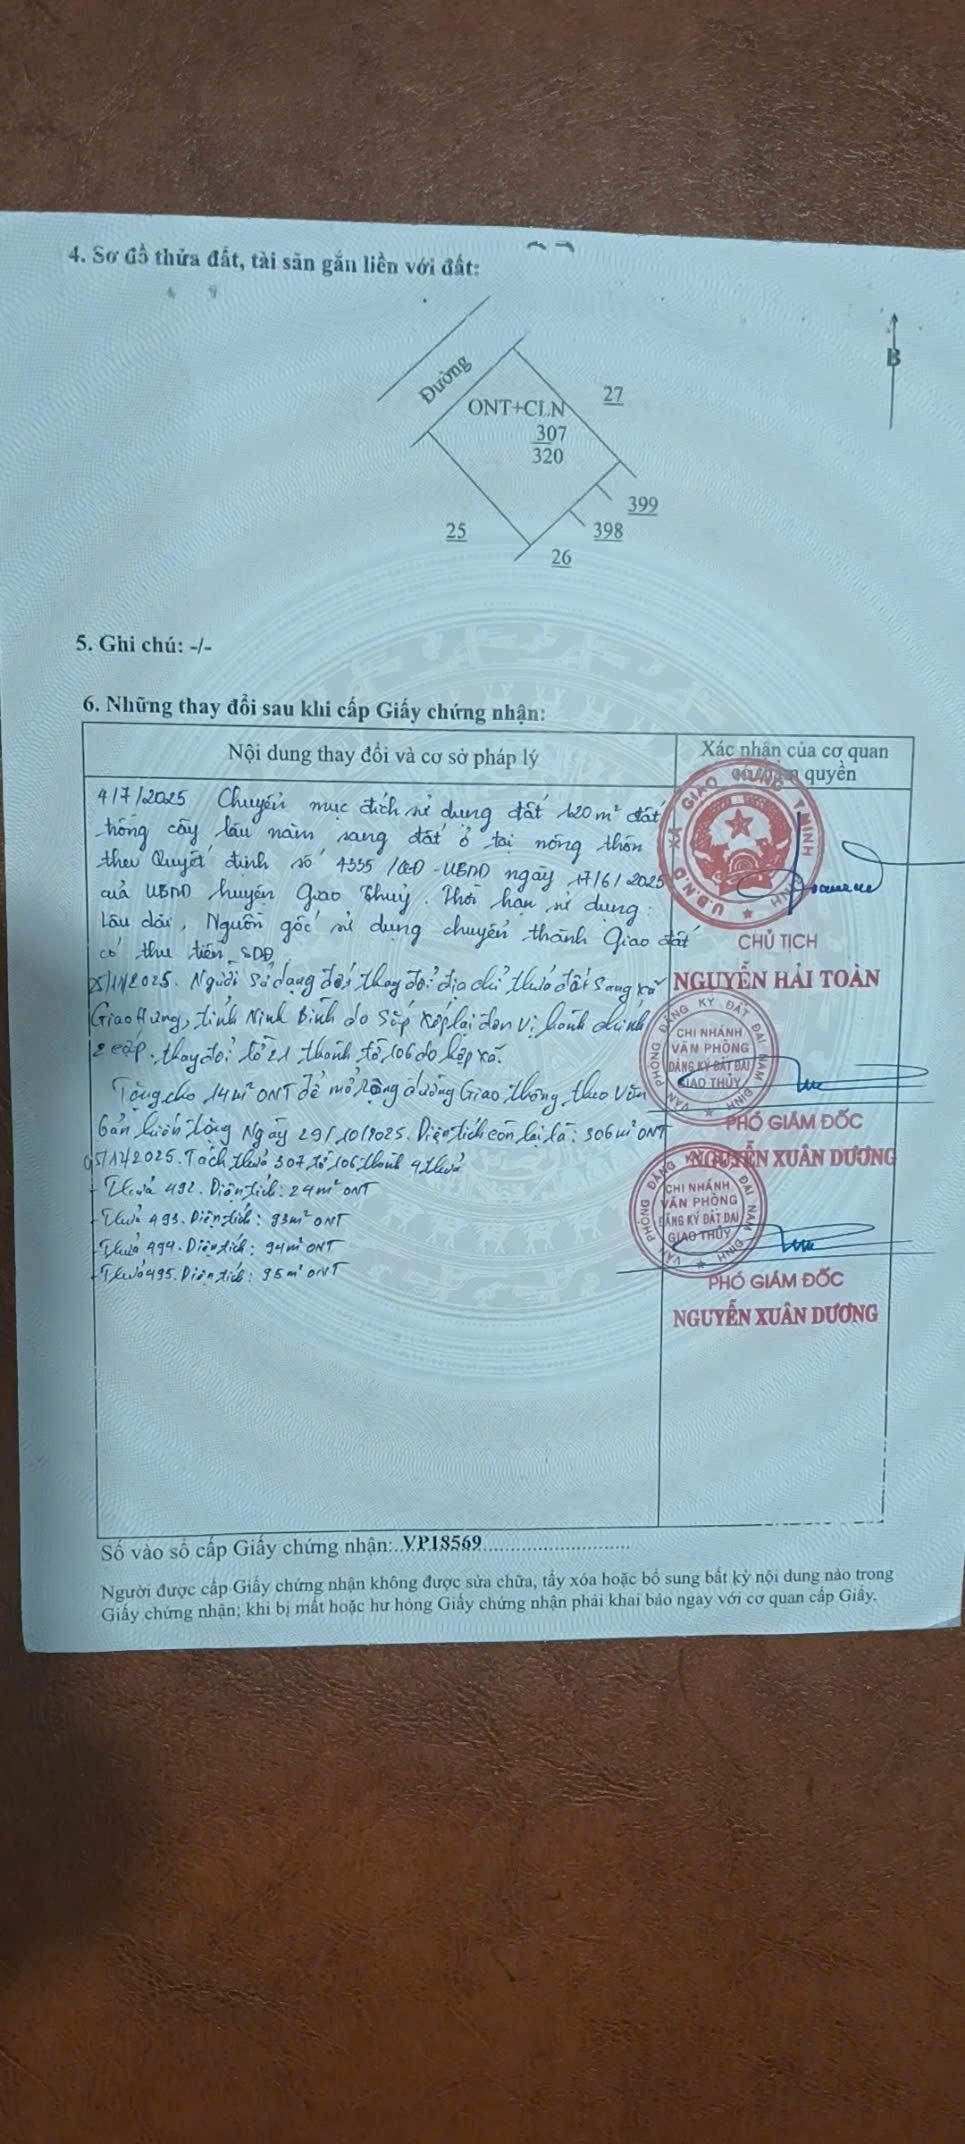 4. Sơ đồ thửa đất, tài sản gắn liền với đất:
B
Đường
ONT+CLN
307
320
27
399
398
25
26
5. Ghi chú: -/-
6. Những thay đổi sau khi cấp Giấy chứng nhận:
Nội dung thay đổi và cơ sở pháp lý
Xác nhận của cơ quan
có thẩm quyền
4/7/2025 Chuyển mục đích sử dụng đất 120m² đất
trồng cây lâu năm sang đất ở tại nông thôn
theo Quyết định số 4355/QĐ-UBND ngày 17/6/2025
của UBND huyện Giao Thuỷ. Thời hạn sử dụng:
Lâu dài, Nguồn gốc sử dụng chuyển thành Giao đất
có thu tiền SDĐ
25/11/2025. Người sử dụng đất thay đổi địa chỉ thửa đất sang xã
Giao Hưng, tỉnh Ninh Bình do sắp xếp lại đơn vị hành chính
2 cấp. thay đổi tờ 21 thành tờ 106 do hợp xã.
Tặng cho 14m² ONT để mở rộng đường Giao thông theo Văn
bản hiến tặng Ngày 29/10/2025. Diện tích còn lại là: 306m² ONT
05/12/2025. Tách thửa 307 tờ 106 thành 4 thửa
- Thửa 492. Diện tích: 24m² ONT
- Thửa 493. Diện tích: 93m² ONT
- Thửa 494. Diện tích: 94m² ONT
- Thửa 495. Diện tích: 95m² ONT
U.B.N.D XÃ GIAO HƯNG TỈNH
CHỦ TỊCH
NGUYỄN HẢI TOÀN
VĂN PHÒNG ĐĂNG KÝ ĐẤT ĐAI NAM ĐỊNH
CHI NHÁNH
VĂN PHÒNG
ĐĂNG KÝ ĐẤT ĐAI
GIAO THỦY
PHÓ GIÁM ĐỐC
NGUYỄN XUÂN DƯƠNG
VĂN PHÒNG ĐĂNG KÝ ĐẤT ĐAI NAM ĐỊNH
CHI NHÁNH
VĂN PHÒNG
ĐĂNG KÝ ĐẤT ĐAI
GIAO THỦY
PHÓ GIÁM ĐỐC
NGUYỄN XUÂN DƯƠNG
Số vào sổ cấp Giấy chứng nhận: VP18569
Người được cấp Giấy chứng nhận không được sửa chữa, tẩy xóa hoặc bổ sung bất kỳ nội dung nào trong
Giấy chứng nhận; khi bị mất hoặc hư hỏng Giấy chứng nhận phải khai báo ngay với cơ quan cấp Giấy.